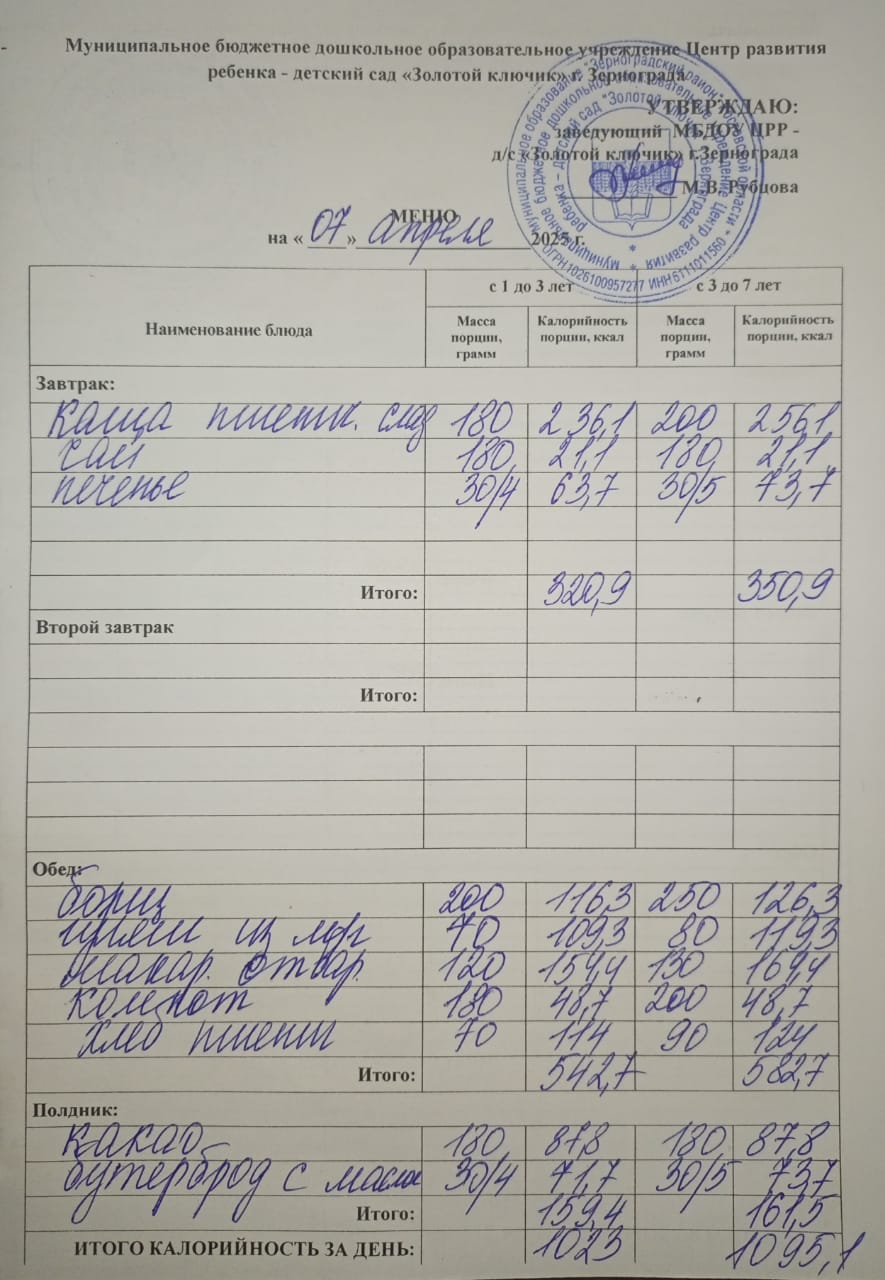 Муниципальное бюджетное дошкольное образовательное учреждение Центр развития
ребенка - детский сад «Золотой ключик» г. Зернограда
УТВЕРЖДАЮ:
заведующий МБДОУ ЦРР -
д/с «Золотой ключик» г.Зернограда
М.В. Рубцова
МЕНЮ
на « 07 » апреля 2025 г.
ОГРН 1026100957277 ИНН 6111011560
Наименование блюда с 1 до 3 лет с 3 до 7 лет
Масса порции, грамм Калорийность порции, ккал Масса порции, грамм Калорийность порции, ккал
Завтрак:
Каша пшенич. слад 180 236,1 200 256,1
чай 180 21,1 180 21,1
печенье 30/4 63,7 30/5 73,7
Итого: 320,9 350,9
Второй завтрак
Итого:
Обед:
борщ 200 116,3 250 126,3
из 70 109,3 80 119,3
макар. отвар. 120 154,4 130 164,4
компот 180 48,7 200 48,7
хлеб пшенич 70 114 90 124
Итого: 542,7 582,7
Полдник:
какао 180 87,8 180 87,8
бутерброд с маслом 30/4 71,7 30/5 73,7
Итого: 159,4 161,5
ИТОГО КАЛОРИЙНОСТЬ ЗА ДЕНЬ: 1023 1095,1